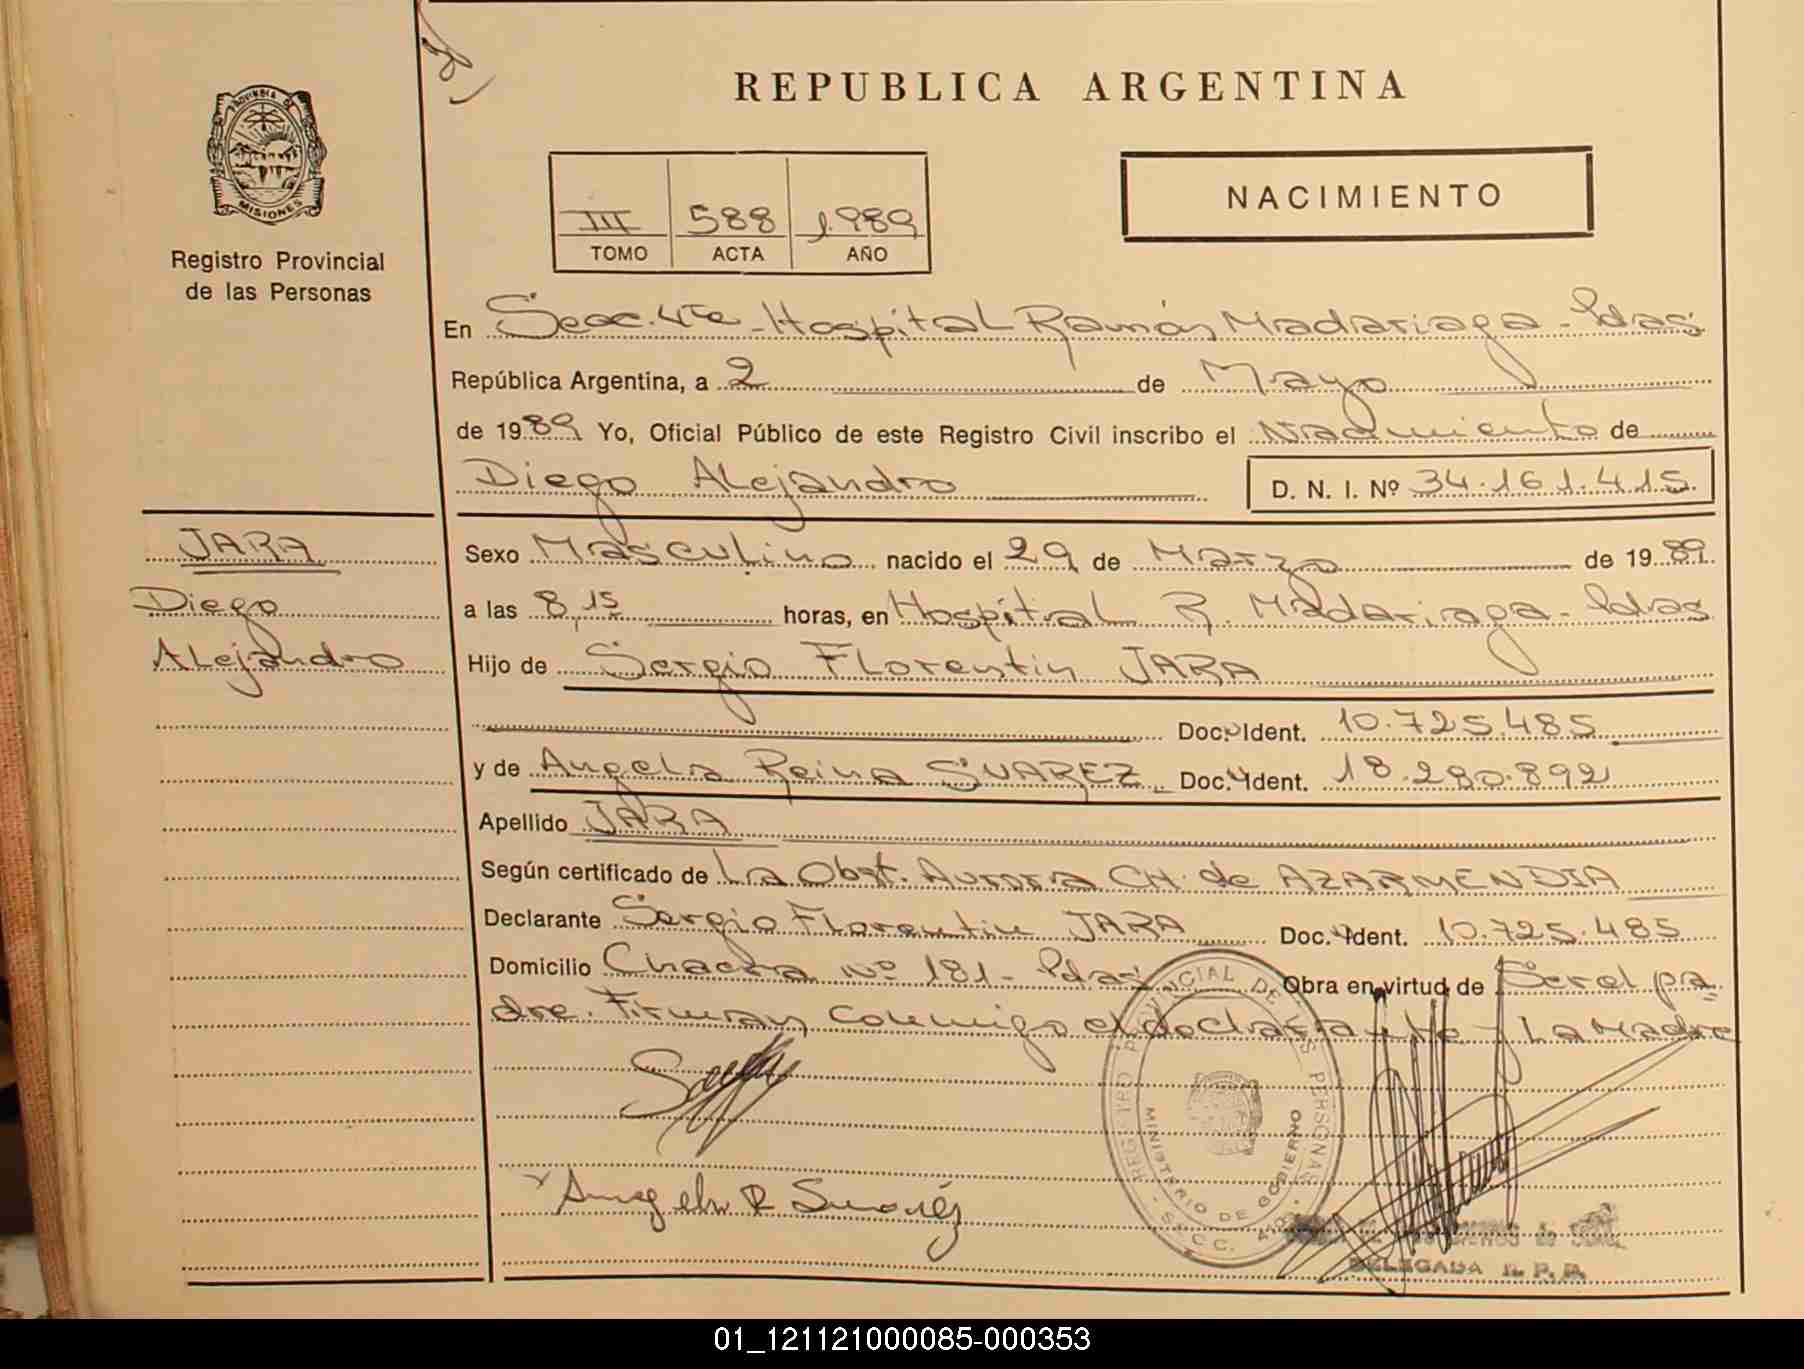 REPUBLICA ARGENTINA
PROVINCIA DE
MISIONES
Registro Provincial
de las Personas
III 588 1.989
TOMO ACTA AÑO
NACIMIENTO
En Secc. 4ta - Hospital Ramón Madariaga - Pdas
República Argentina, a 2 de Mayo
de 1989 Yo, Oficial Público de este Registro Civil inscribo el Nacimiento de
Diego Alejandro D. N. I. Nº 34.161.415
JARA
Diego
Alejandro
Sexo Masculino nacido el 29 de Marzo de 1989
a las 8,15 horas, en Hospital R. Madariaga - Pdas
Hijo de Sergio Florentin JARA
Doc. Ident. 10.725.485
y de Angela Reina SUAREZ Doc. Ident. 18.280.892
Apellido JARA
Según certificado de La Obst. Aurora CH. de AZARMENDIA
Declarante Sergio Florentin JARA Doc. Ident. 10.725.485
Domicilio Chacra Nº 181 - Pdas Obra en virtud de Ser el pa
dre. Firman conmigo el declarante y La Madre
Angela R Suarez
REGISTRO PROVINCIAL DE LAS PERSONAS
MINISTERIO DE GOBIERNO
SECC.
DELEGADA R. P. P.
01_121121000085-000353